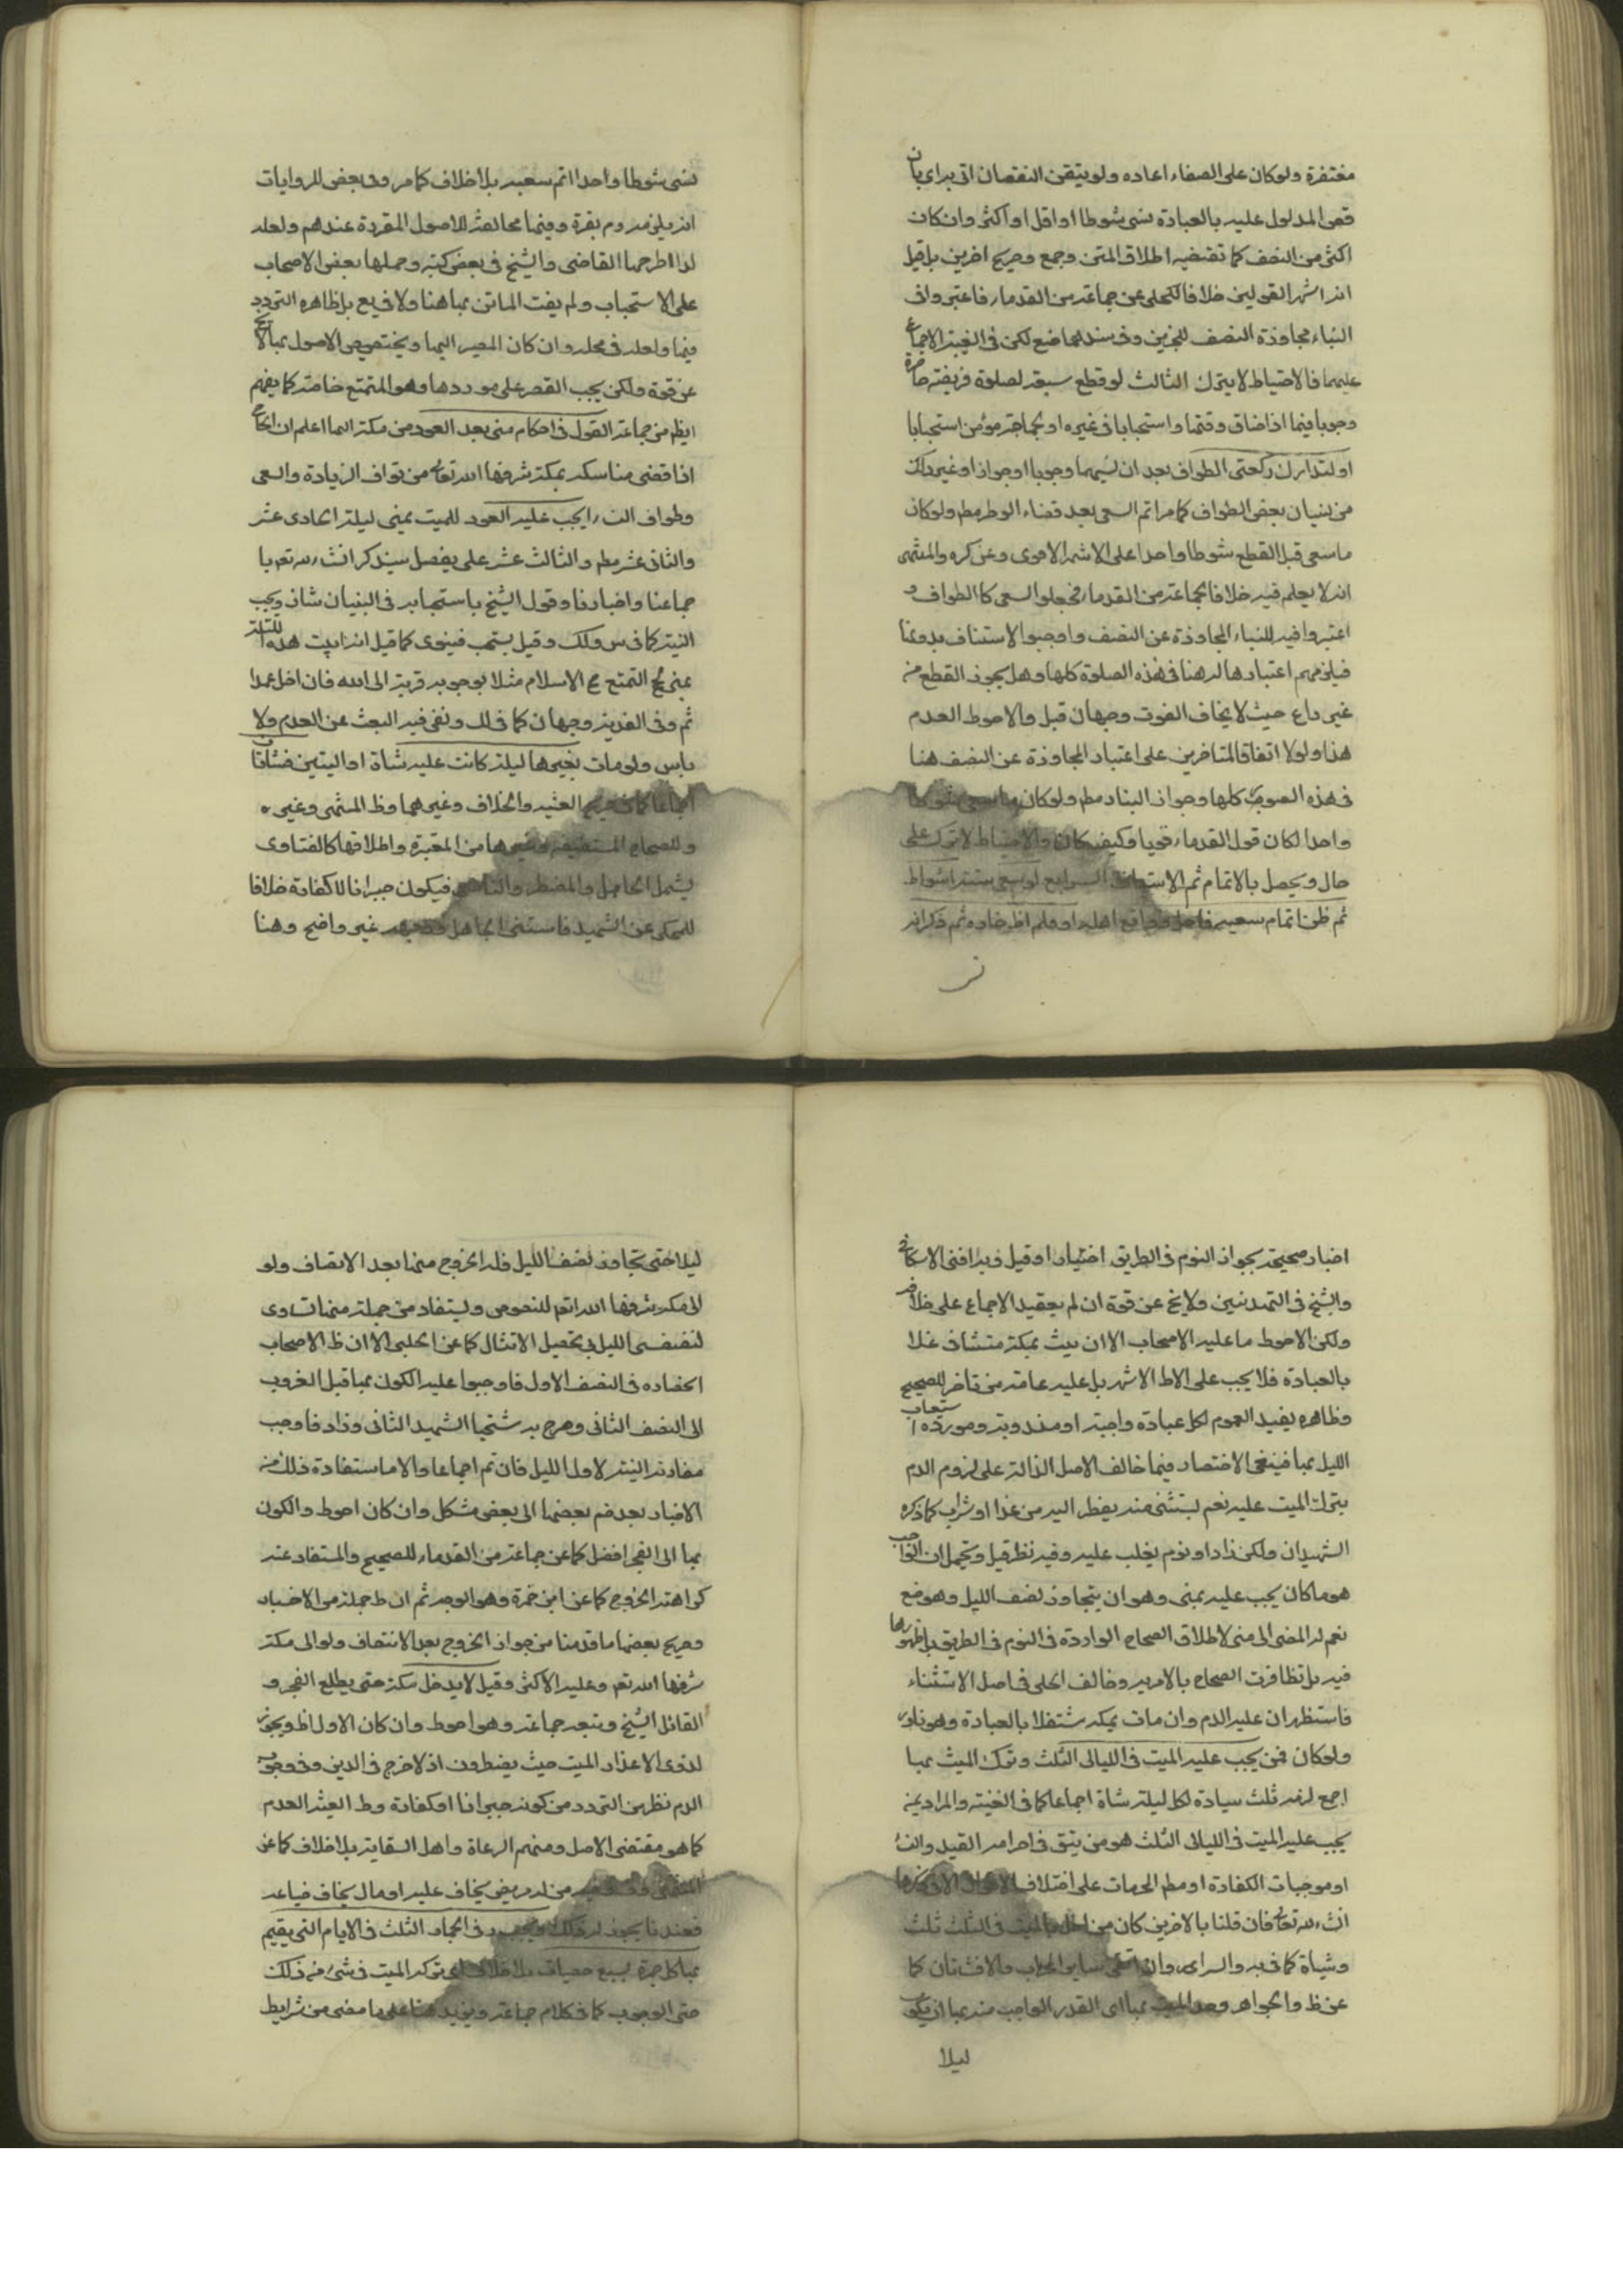 مغتفرة ولو كان على الصفاء اعاده ولو تيقن النقصان اتى به اى بان
قص المدلول عليه بالعبادة نسى شوطا او اقل او اكثر وان كان
اكثر من النصف كما تقتضيه اطلاق المتن وجمع وصريح اخرين بل قيل
انه اشهر القولين خلافا لمحكى عن جماعة من القدماء فاعتبروا فى
البناء مجاوزة النصف للخبرين وفى سندهما ضعف لكن فى الغنية الاجماع
عليهما فالاحتياط لا يترك الثالث لو قطع سعيه لصلوة فريضة حاضرة
وجوبا فيما اذا ضاق وقتها واستحبابا فى غيره او لحاجة مؤمن استحبابا
او لتدارك ركعتى الطواف بعد ان نسيهما وجوبا او جوازا او غير ذلك
من نسيان بعض الطواف كما مر اتم السعى بعد قضاء الوطر مطم ولو كان
ما سعى قبل القطع شوطا واحدا على الاشهر الاقوى وعن كره والمنتهى
انه لا يعلم فيه خلافا لجماعة من القدماء فجعلوا السعى كالطواف و
اعتبروا فيه للبناء المجاوزة عن النصف واوجبوا الاستيناف بدونها
فيلزمهم اعتبارها له هنا فى هذه الصلوة كلها وهل يجوز القطع من
غير داع حيث لا يخاف الفوت وجهان قيل والاحوط العدم
هذا ولولا اتفاق المتاخرين على اعتبار المجاوزة عن النصف هنا
فى هذه الصور كلها وجواز البناء مطم ولو كان ما سعى شوطا
واحدا لكان قول القدماء قويا وكيف كان والاحتياط لا يترك على
حال ويحصل بالاتمام ثم الاستيناف الرابع لو سعى ستة اشواط
ثم ظن اتمام سعيه فاحل وجامع اهله او قلم اظفاره ثم ذكر انه
نسى شوطا واحدا اتم سعيه بلا خلاف كما مر وفى بعض الروايات
انه يلزمه دم بقرة وفيها مخالفة للاصول المقررة عندهم ولعله
لذا اطرحها القاضى والشيخ فى بعض كتبه وحملها بعض الاصحاب
على الاستحباب ولم يفت الماتن بها هنا ولا فى يع بل ظاهره التردد
فيها ولعله فى محله وان كان المصير اليها وتخصيص الاصول بها لا يخ
عن قوة ولكن يجب القصر على موردها وهو المتمتع خاصة كما يفهم
ايظ من جماعة القول فى احكام منى بعد العود من مكة اليها اعلم ان الحاج
اذا قضى مناسكه بمكة شرفها الله تعالى من طواف الزيادة والسعى
وطواف النساء يجب عليه العود للمبيت بمنى ليلة الحادى عشر
والثانى عشر مطم والثالث عشر على تفصيل سيذكر انشاء الله تعم با
جماعنا واخبارنا وقول الشيخ باستحبابه فى التبيان شاذ ويجب
النية كما فى س ولك وقيل يستحب فينوى كما قيل انه ابيت هذه الليلة
بمنى لحج التمتع حج الاسلام مثلا لوجوبه قربة الى الله فان اخل عمدا
ثم وفى الفدية وجهان كما فى لك ونفى فيه البعث عن العدم ولا
باس ولو مات بغيرها ليلة كانت عليه شاة او اليتين فشاتان
اجماعا كما فى صريح الغنية والخلاف وغيرهما وظ المنتهى وغيره
وللصحاح المستفيضة وغيرها من المعتبرة واطلاقها كالفتاوى
يشمل الجاهل والمضطر والناسى فيكون جبرانا لا كفارة خلافا
للمحكى عن الشهيد فاستثنى الجاهل ووجهه غير واضح وهنا
اخبار صحيحة بجواز النوم فى الطريق اختيارا وقيل وبه افتى الاسكافى
والشيخ فى التهذيبين ولا يخ عن قوة ان لم يعقيد الاجماع على خلافه
ولكن الاحوط ما عليه الاصحاب الا ان يبيت بمكة متشاغلا
بالعبادة فلا يجب على الاظ الاشهر بل عليه عامة من تاخر للصحيح
وظاهره يفيد العموم لكل عبادة واجبة او مندوبة ومورده استيعاب
الليل بها فينبغى الاقتصار فيما خالف الاصل الدالة على لزوم الدم
بترك المبيت عليه نعم يستثنى منه يضطر اليه من غذا او شراب كما ذكره
الشهيدان ولكن زادا ونوم يغلب عليه وفيه نظر قيل ويحتمل ان الواجب
هو ما كان يجب عليه بمنى وهو ان يتجاوز نصف الليل وهو ضع
نعم له المضى الى منى لاطلاق الصحاح الواردة فى النوم فى الطريق بل ظهورها
فيه بل تظافرت الصحاح بالامر به وخالف الحلى فى اصل الاستثناء
فاستظهر ان عليه الدم وان مات بمكة شتغلا بالعبادة وهو نادر
ولو كان ممن يجب عليه المبيت فى الليالى الثلث وترك المبيت بها
اجمع لزمه ثلث سيادة لكل ليلة شاة اجماعا كما فى الغنية والمراد بمن
يجب عليه المبيت فى الليالى الثلث هو من يتق فى احرامه الصيد والنساء
او موجبات الكفارة او مطم الحرمات على اختلاف الاقوال الاتى ذكرها
انشاء الله تعالى فان قلنا بالاخرين كان من اخل بالمبيت فى الثلث ثلث
وشياة كما فى يه والسرائر وان اتقى سائر المحارم والا فشاتان كما
عن ظ والجواهر وحد المبيت بها اى القدر الواجب منه بها ان يكون
ليلا
ليلا حتى يتجاوز نصف الليل فله الخروج منها بعد الانصاف ولو
الى مكة شرفها الله تعم للنصوص ويستفاد من جملة منها تساوى
لنصفى الليل فى تحصيل الامتثال كما عن الحلبى الا ان ظ الاصحاب
انحصاره فى النصف الاول فاوجبوا عليه الكون بها قبل الغروب
الى النصف الثانى وصرح به شيخنا الشهيد الثانى وزاد فاوجب
مقارنة النية لاول الليل فان تم اجماعا والا ما ستفادة ذلك من
الاخبار بعد ضم بعضها الى بعض مشكل وان كان احوط والكون
بها الى الفجر افضل كما عن جماعة من القدماء للصحيح والمستفاد عنه
كراهة الخروج كما عن ابن حمزة وهو الوجه ثم ان ظ جملة من الاخبار
وصريح بعضها ما قدمنا من جواز الخروج بعد الانتصاف ولو الى مكة
شرفها الله تعم وعليه الاكثر وقيل لا يدخل مكة حتى يطلع الفجر و
القائل الشيخ وتبعه جماعة وهو احوط وان كان الاول اظ ويجوز
لذوى الاعذار المبيت حيث يضطرون اذ لا حرج فى الدين وفى وجوب
الدم نظر من التردد من كونه جبرانا او كفارة وظ الغنية العدم
كما هو مقتضى الاصل ومنهم الرعاة واهل السقاية بلا خلاف كما عن
المنتهى وغيره من له مريض يخاف عليه او مال يخاف ضياعه
فعندنا يجوز له ذلك ويجب رمى الجمار الثلث فى الايام التى يقيم
بها كل جمرة بسبع حصيات بلا خلاف اى توكد المبيت فى شئ من ذلك
حتى الوجوب كما فى كلام جماعة ويزيد هنا على ما مضى من شرايط